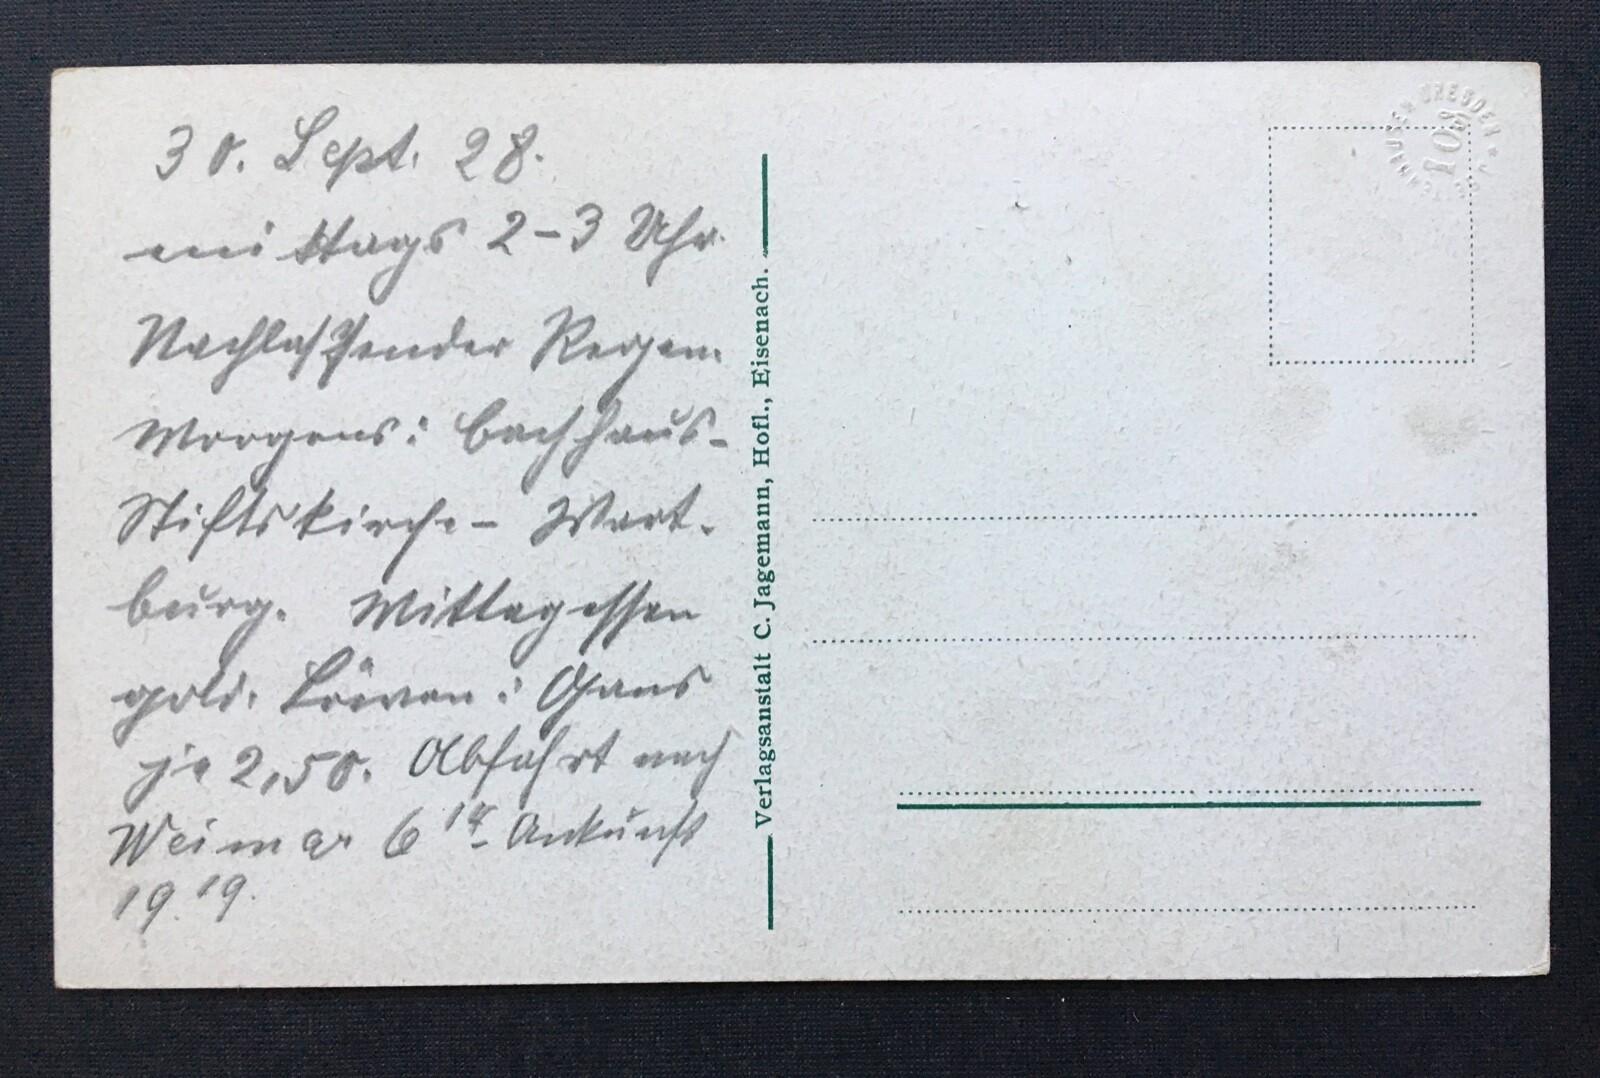 30. Sept. 28.
mittags 2-3 Uhr.
Nachlassender Regen.
Morgens: Bachhaus-
Stiftskirche - Wart-
burg. Mittagessen
gold. Löwen: Gans
je 2,50. Abfahrt nach
Weimar 6 14 - Ankunft
19.19.
Verlagsanstalt C. Jagemann, Hofl., Eisenach.
DRESDEN
108